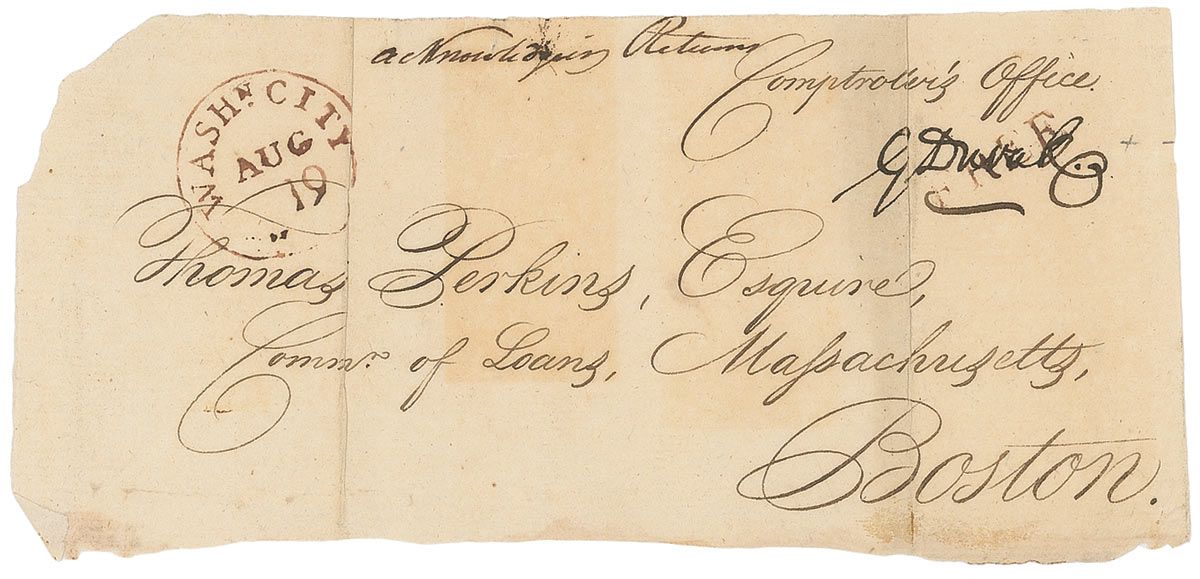 acknowledging Returns
Comptroller's Office.
WASHN. CITY
AUG
19
FREE
G Duvall
Thomas Perkins, Esquire,
Commr. of Loans, Maſsachusetts,
Boston.